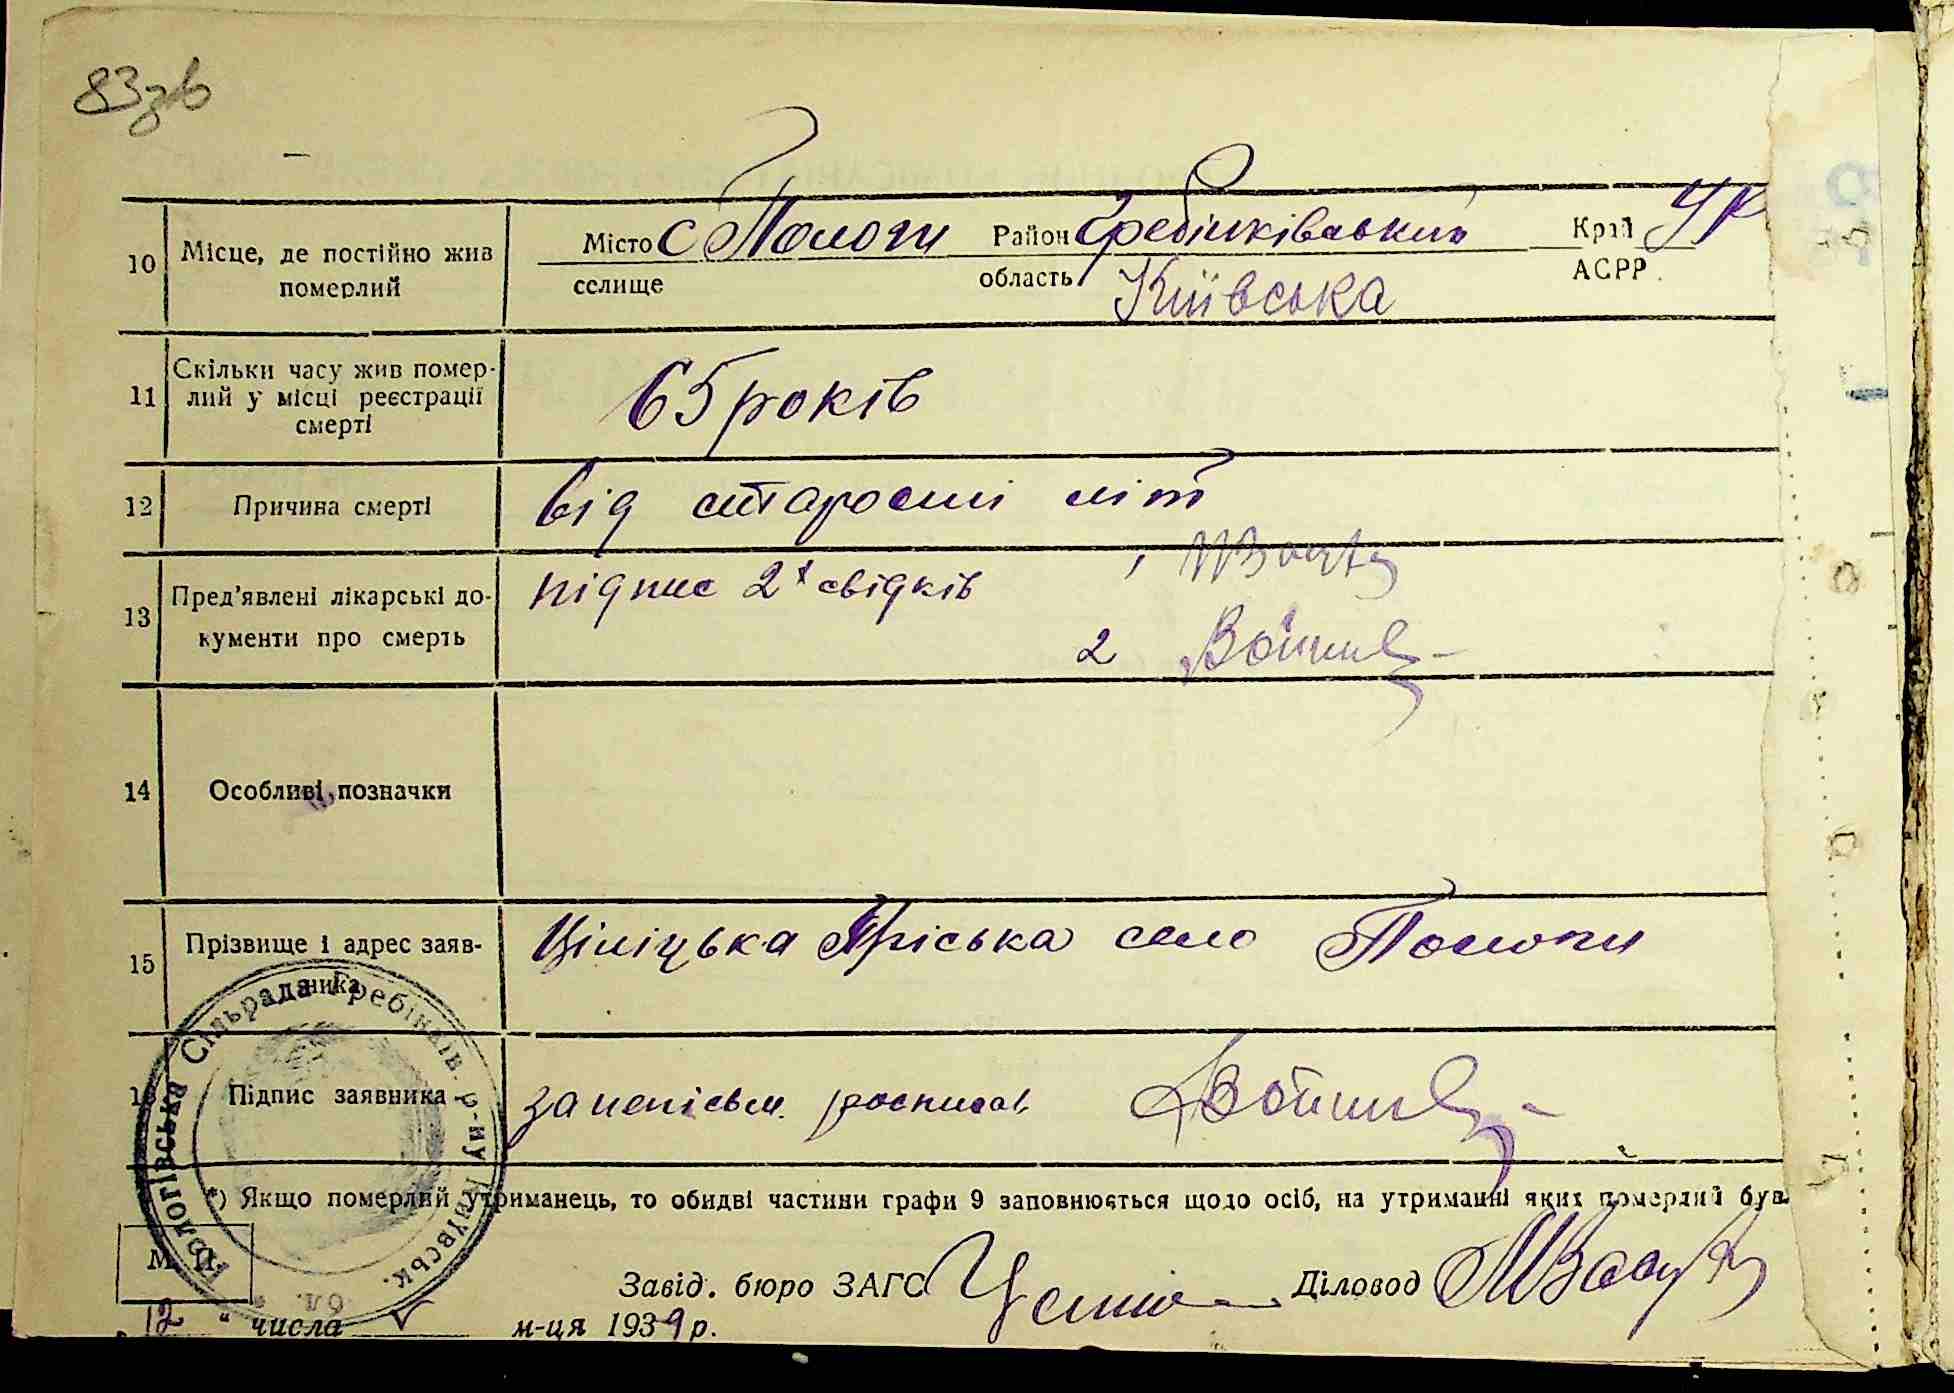 83зв
10 Місце, де постійно жив Місто с Пологи Район Гребінківський Край УР
померлий селище область Київська АСРР
11 Скільки часу жив помер-
лий у місці реєстрації 65 років
смерті
12 Причина смерті від старости літ
13 Пред'явлені лікарські до- підпис 2х свідків
кументи про смерть 2
14 Особливі позначки
15 Прізвище і адрес заяв- Пріська село Пологи
ника
16 Підпис заявника за неписьм. росписав
*) Якщо померлий утриманець, то обидві частини графи 9 заповнюється щодо осіб, на утриманні яких померлий був.
М. П.
Завід. бюро ЗАГС Діловод
"12" числа V м-ця 1939 р.
Пологівська Сільрада Гребінків. р-ну Київськ. обл.